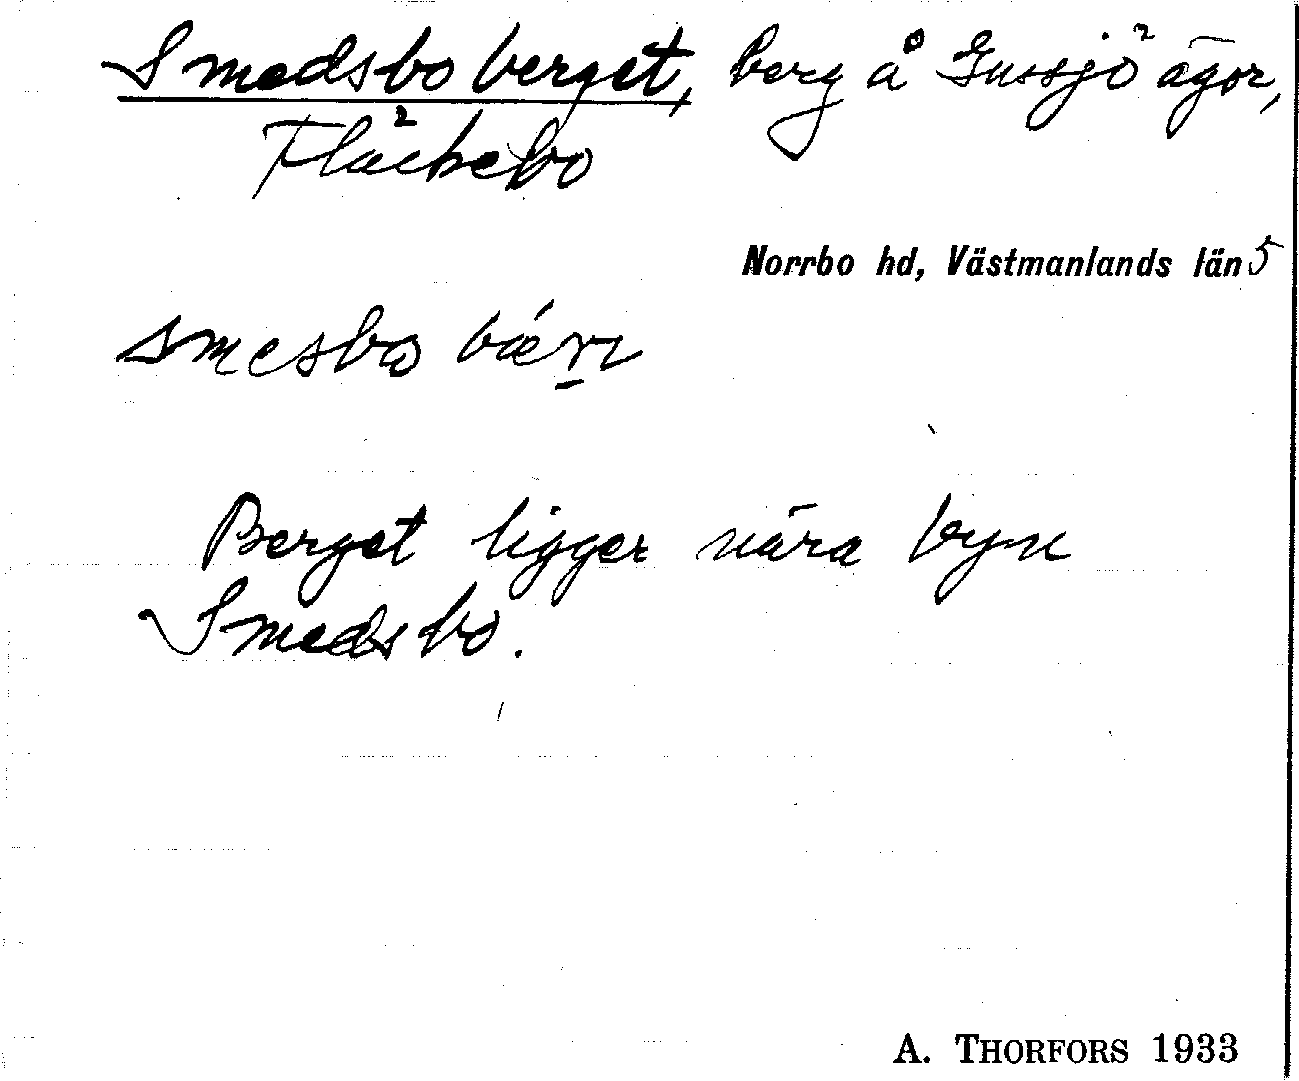 Smedsboberget, berg å Gussjö ägor,
Fläckebo
Norrbo hd, Västmanlands län 5
smesbo bærɩ
Berget ligger nära byn
Smedsbo.
A. THORFORS 1933